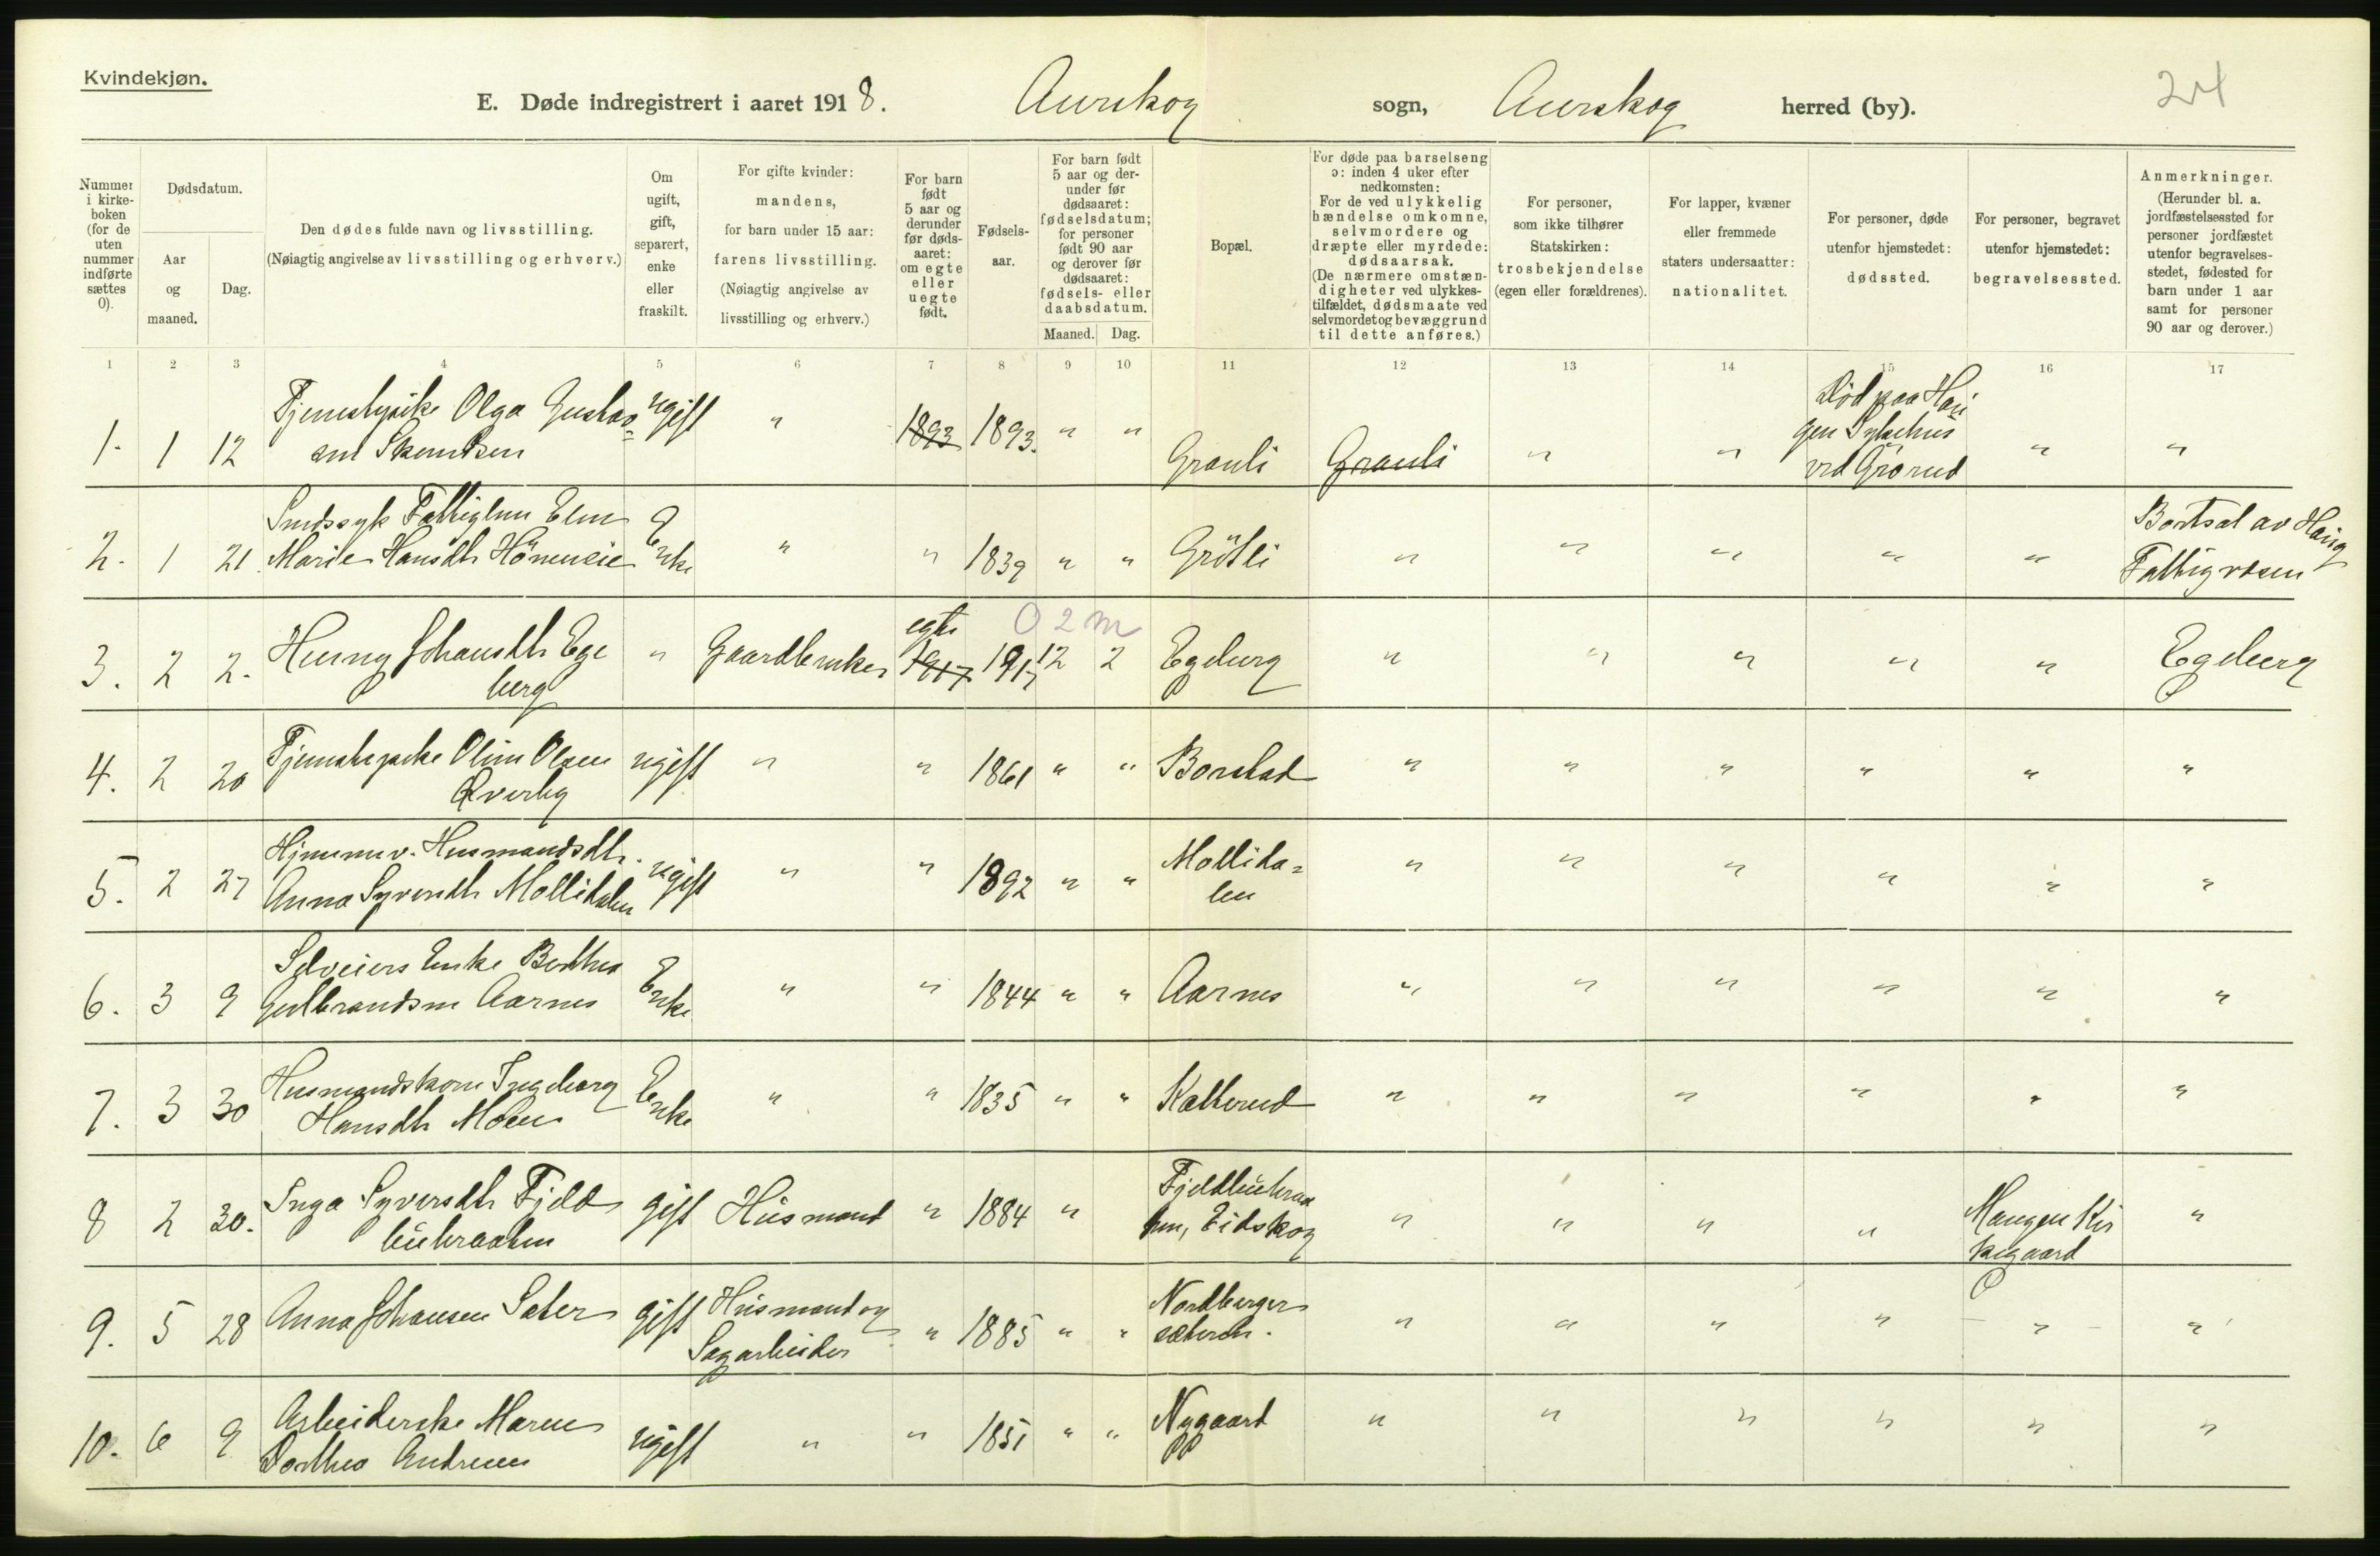 Kvindekjøn.
E. Døde indregistrert i aaret 1918. Aurskog sogn, Aurskog herred (by). 24
Nummer i kirkeboken (for de uten nummer indførte sættes 0).
Dødsdatum.
Aar og maaned.
Dag.
Den dødes fulde navn og livsstilling.
(Nøiagtig angivelse av livsstilling og erhverv.)
Om ugift, gift, separert, enke eller fraskilt.
For gifte kvinder: mandens, for barn under 15 aar: farens livsstilling. (Nøiagtig angivelse av livsstilling og erhverv.)
For barn født 5 aar og derunder før dødsaaret: om egte eller uegte født.
Fødselsaar.
For barn født 5 aar og derunder før dødsaaret: fødselsdatum; for personer født 90 aar og derover før dødsaaret: fødsels- eller daabsdatum.
Maaned. Dag.
Bopæl.
For døde paa barselseng ɔ: inden 4 uker efter nedkomsten: For de ved ulykkelig hændelse omkomne, selvmordere og dræpte eller myrdede: dødsaarsak. (De nærmere omstændigheter ved ulykkestilfældet, dødsmaate ved selvmordet og bevæggrund til dette anføres.)
For personer, som ikke tilhører Statskirken: trosbekjendelse (egen eller forældrenes).
For lapper, kvæner eller fremmede staters undersaatter: nationalitet.
For personer, døde utenfor hjemstedet: dødssted.
For personer, begravet utenfor hjemstedet: begravelsessted.
Anmerkninger. (Herunder bl. a. jordfæstelsessted for personer jordfæstet utenfor begravelsesstedet, fødested for barn under 1 aar samt for personer 90 aar og derover.)
1 2 3 4 5 6 7 8 9 10 11 12 13 14 15 16 17
1. 1 12 Tjenestepike Olga Gustav= ugift " 1893 1893. " " Grauli Grauli " " Død paa Hau " "
sen Skamdsen gen Sykehus
ved Grorud
2. 1 21. Sindssyk Fattiglem Elen Enke " " 1839 " " Grötli " " " " " Bortsat av Haug
Marie Hansdtr Höneneie Fattigvæsen
3. 2 2. Henny Johansdtr Ege " Gaardbruker egte 1917 1917 12 2 Egeberg " " " " " Egeberg
berg 0 2 m
4. 2 20 Tjenestepike Oline Olsen ugift " " 1861 " " Borstad " " " " " "
Överby
5. 2 27 Hjemmev. Husmandsdtr. ugift " " 1892 " " Mollida= " " " " " "
Anna Syversdtr Mollidalen len
6. 3 9 Selveiers Enke Berthea Enke " " 1844 " " Aarnes " " " " " "
Gulbrandsen Aarnes
7. 3 30 Husmandskone Ingeborg Enke " " 1835 " " Katterud " " " " " "
Hansdtr Moen
8 2 30. Inga Syversdtr Fjeld gift Husmand " 1884 " Fjeldbubraa " " " " Mangen Kir "
bubraaten ten, Eidskog kegaard
9. 5 28 Anna Johansen Sæter gift Husmand og " 1885 " " Nordberger " " " " " "
Sagarbeider sæteren.
10. 6 9 Arbeiderske Maren ugift " " 1851 " " Nygaard " " " " " "
Dorthea Andresen